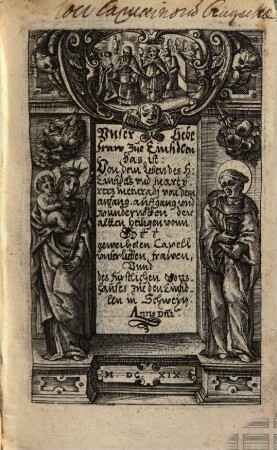 Unser Liebe
fraw Zue Einsidlen
das ist:
Von dem leben des H:
Einsidls und marty,
rers meinradi von dem
anfang, auffgang und
wunderwercken der
alten heiligen vonn
Gott
geweihten Capell
unser lieben frawen,
Unnd
des fürstlichen Gotts,
hauses zue den Einsid
len in Schweyz.
Anno Dñi
M DC XIX